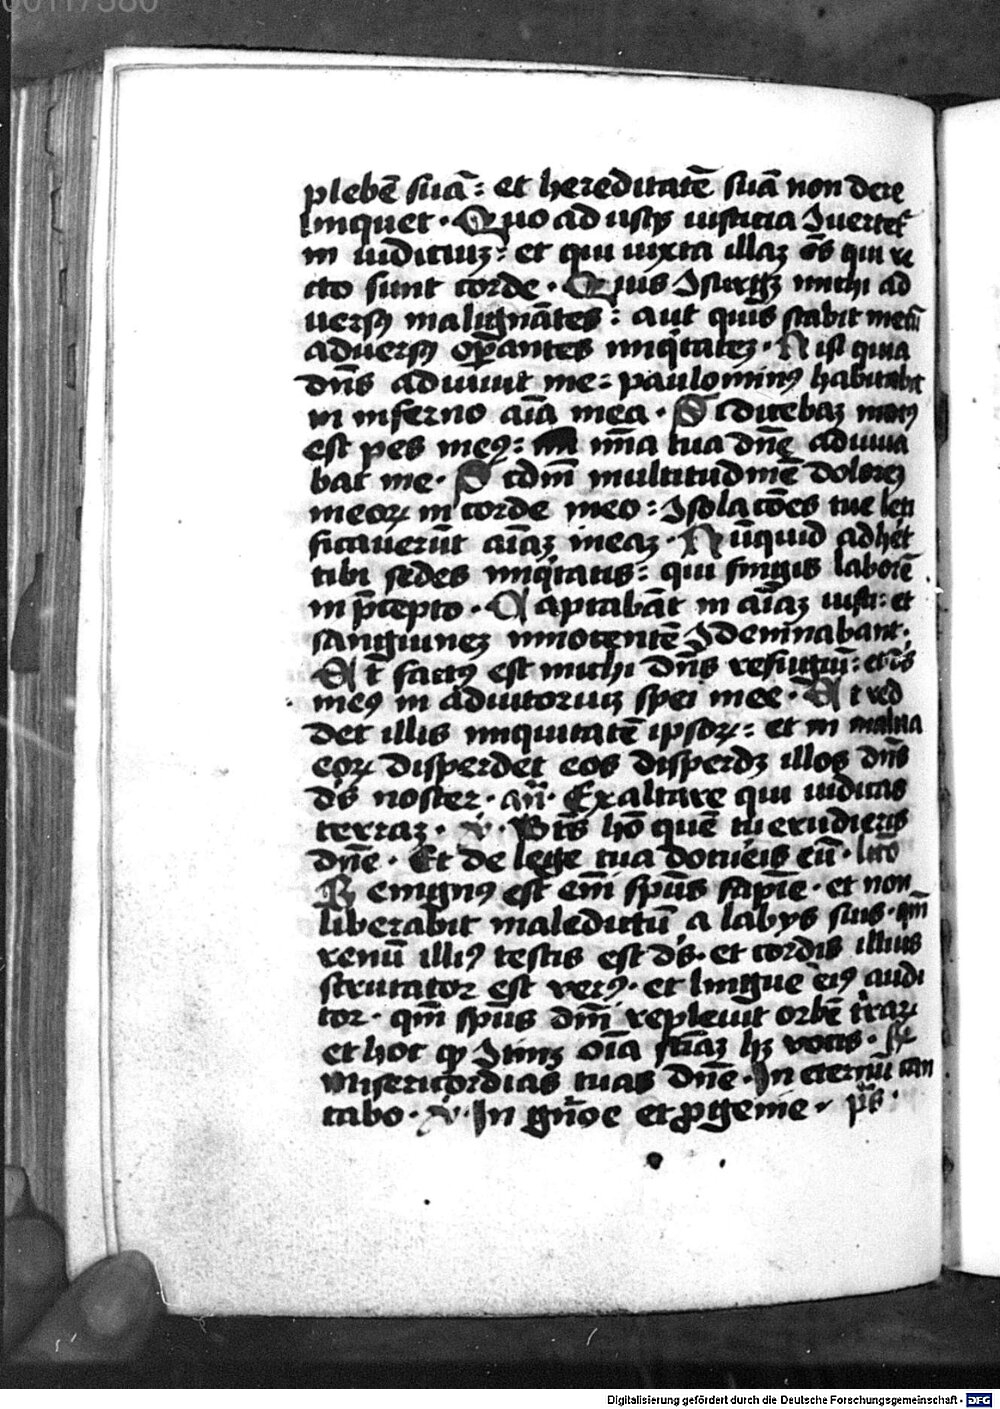 00117580
plebē suā: et hereditatē suā non dere
linquet. Quo ad usqȝ iusticia Ʒuertet̄
in iudiciuȝ: et qui iuxta illaȝ oēs qui re
cto sunt corde. Quis Ɔsurgȝ michi ad
versꝯ malignātes: aut quis stabit mecū
adversꝯ oꝑantes iniq̇tateȝ. Nisi quia
dn̄s adiuvit me: paulominꝯ habitabit
in inferno aīa mea. Si dicebaȝ motꝯ
est pes meꝯ: mīa tua dn̄e adiuva
bat me. Scdm̄ multitudinē doloreȝ
meoꝝ in corde meo: Ɔsolacōes tue leti
ficaverūt aīaȝ meaȝ. Nūquid adhēt
tibi sedes iniq̇tatis: qui fingis laborē
in p̄cepto. Captabāt in aīaȝ iusti: et
sanguineȝ innocentē Ɔdemnabant.
Et factꝯ est michi dn̄s refugiū: et dꝰs
meꝯ in adiutoriuȝ spei mee. Et red
det illis iniquitatē ipsoꝝ: et in malicia
eoꝝ disperdet eos disperdȝ illos dn̄s
ds̄ noster. an̄. Exaltare qui iudicas
terraȝ. v̄. Bt̄s hō quē tu erudieris
dn̄e. Et de lege tua docuēis eū. lc̄ō
Benignꝯ est em̄ spūs sapīe. et non
liberabit maledictū a labijs suis. qm̄
renū illiꝯ testis est ds̄. et cordis illius
scrutator est verꝯ. et lingue eiꝯ audi
tor. qm̄ spūs dn̄i replevit orbē t̄raꝝ
et hoc qꝫ Ɔtinȝ oīa sciāȝ hȝ vocis. ꝶ
Misericordias tuas dn̄e. In eternū can
tabo. v̄. In gn̄acōe et ꝓgenie. p̄s.
Digitalisierung gefördert durch die Deutsche Forschungsgemeinschaft - DFG